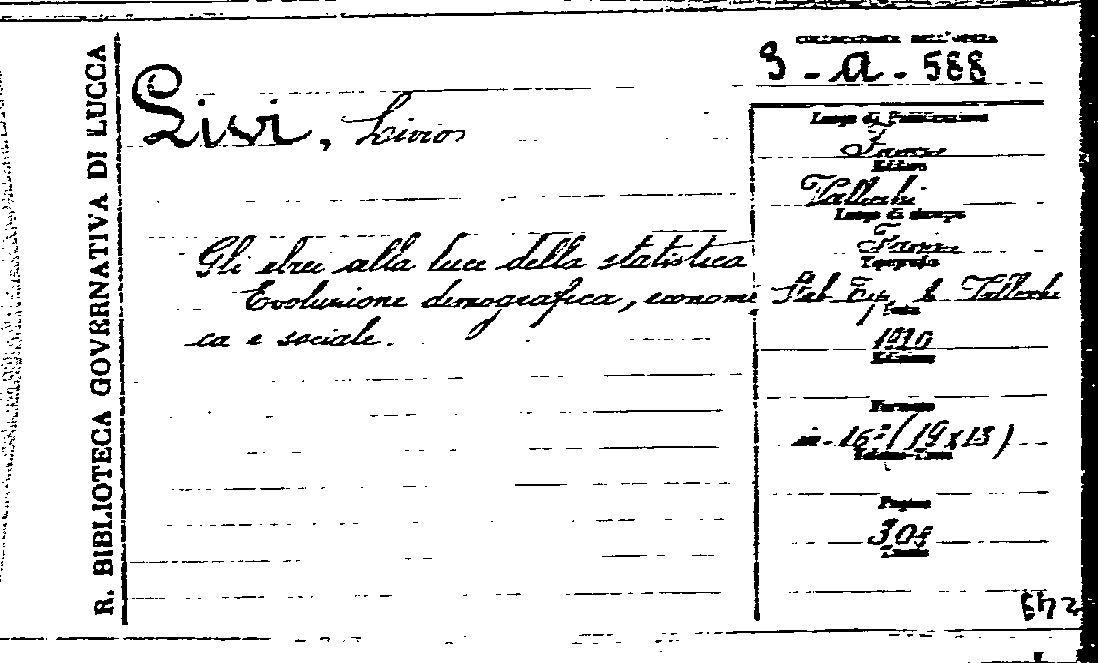 R. BIBLIOTECA GOVERNATIVA DI LUCCA
COLLOCAZIONE DELL'OPERA
3 - a - 588
Livi, Livio
Gli ebrei alla luce della statistica
Evoluzione demografica, economi
ca e sociale.
Luogo di Pubblicazione
Editore
Vallecchi
Luogo di stampa
Tipografia
Stab. Tip. Vallecchi
1920
Edizione
Formato
in-16° (19x13)
Pagine